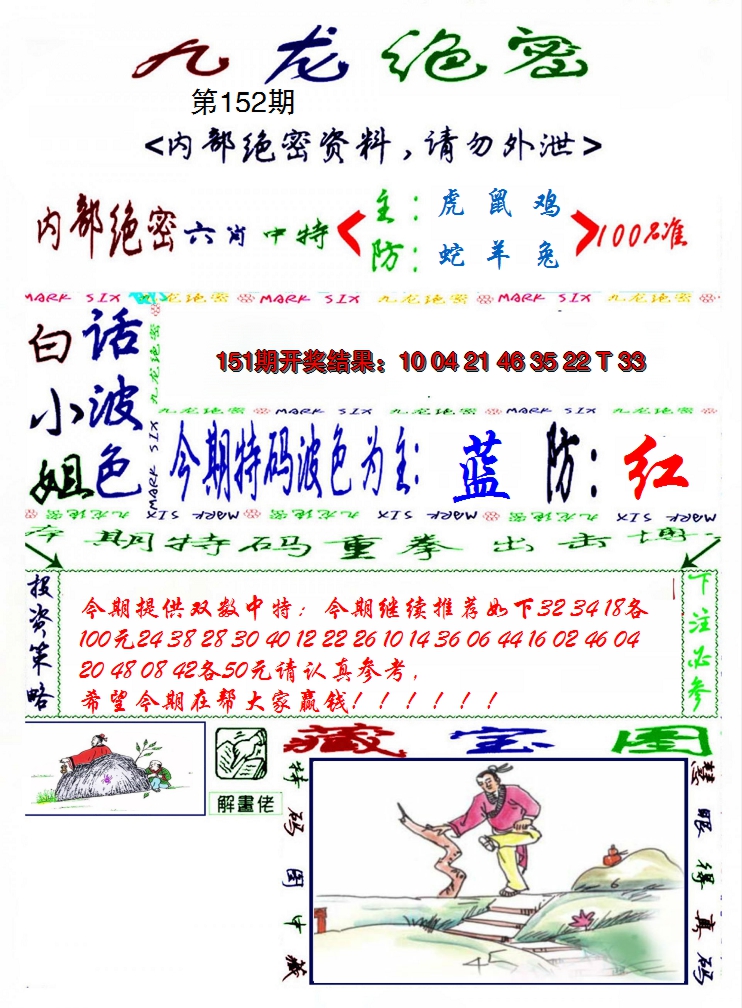 九龙绝密
第152期
<内部绝密资料,请勿外泄>
内部绝密六肖中特
主:虎鼠鸡
防:蛇羊兔
100%准
MARK SIX 九龙绝密 MARK SIX 九龙绝密 MARK SIX 九龙绝密
白小姐
话波色
九龙绝密 MARK SIX
151期开奖结果:10 04 21 46 35 22 T 33
九龙绝密 MARK SIX 九龙绝密 MARK SIX 九龙绝密
今期特码波色为主:蓝 防:红
MARK SIX 九龙绝密 MARK SIX 九龙绝密 MARK SIX 九龙绝密
本期特码重拳出击博
投资策略
今期提供双数中特:今期继续推荐如下32 34 18各
100元24 38 28 30 40 12 22 26 10 14 36 06 44 16 02 46 04
20 48 08 42各50元请认真参考,
希望今期在帮大家赢钱!!!!!!
下注必参
解畫佬
藏宝图
特码图中藏
慧眼得真码